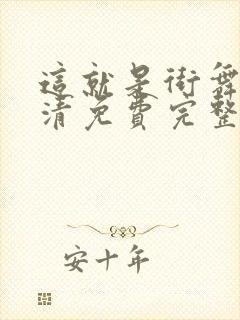 這就是街舞
清免費完整
安十年